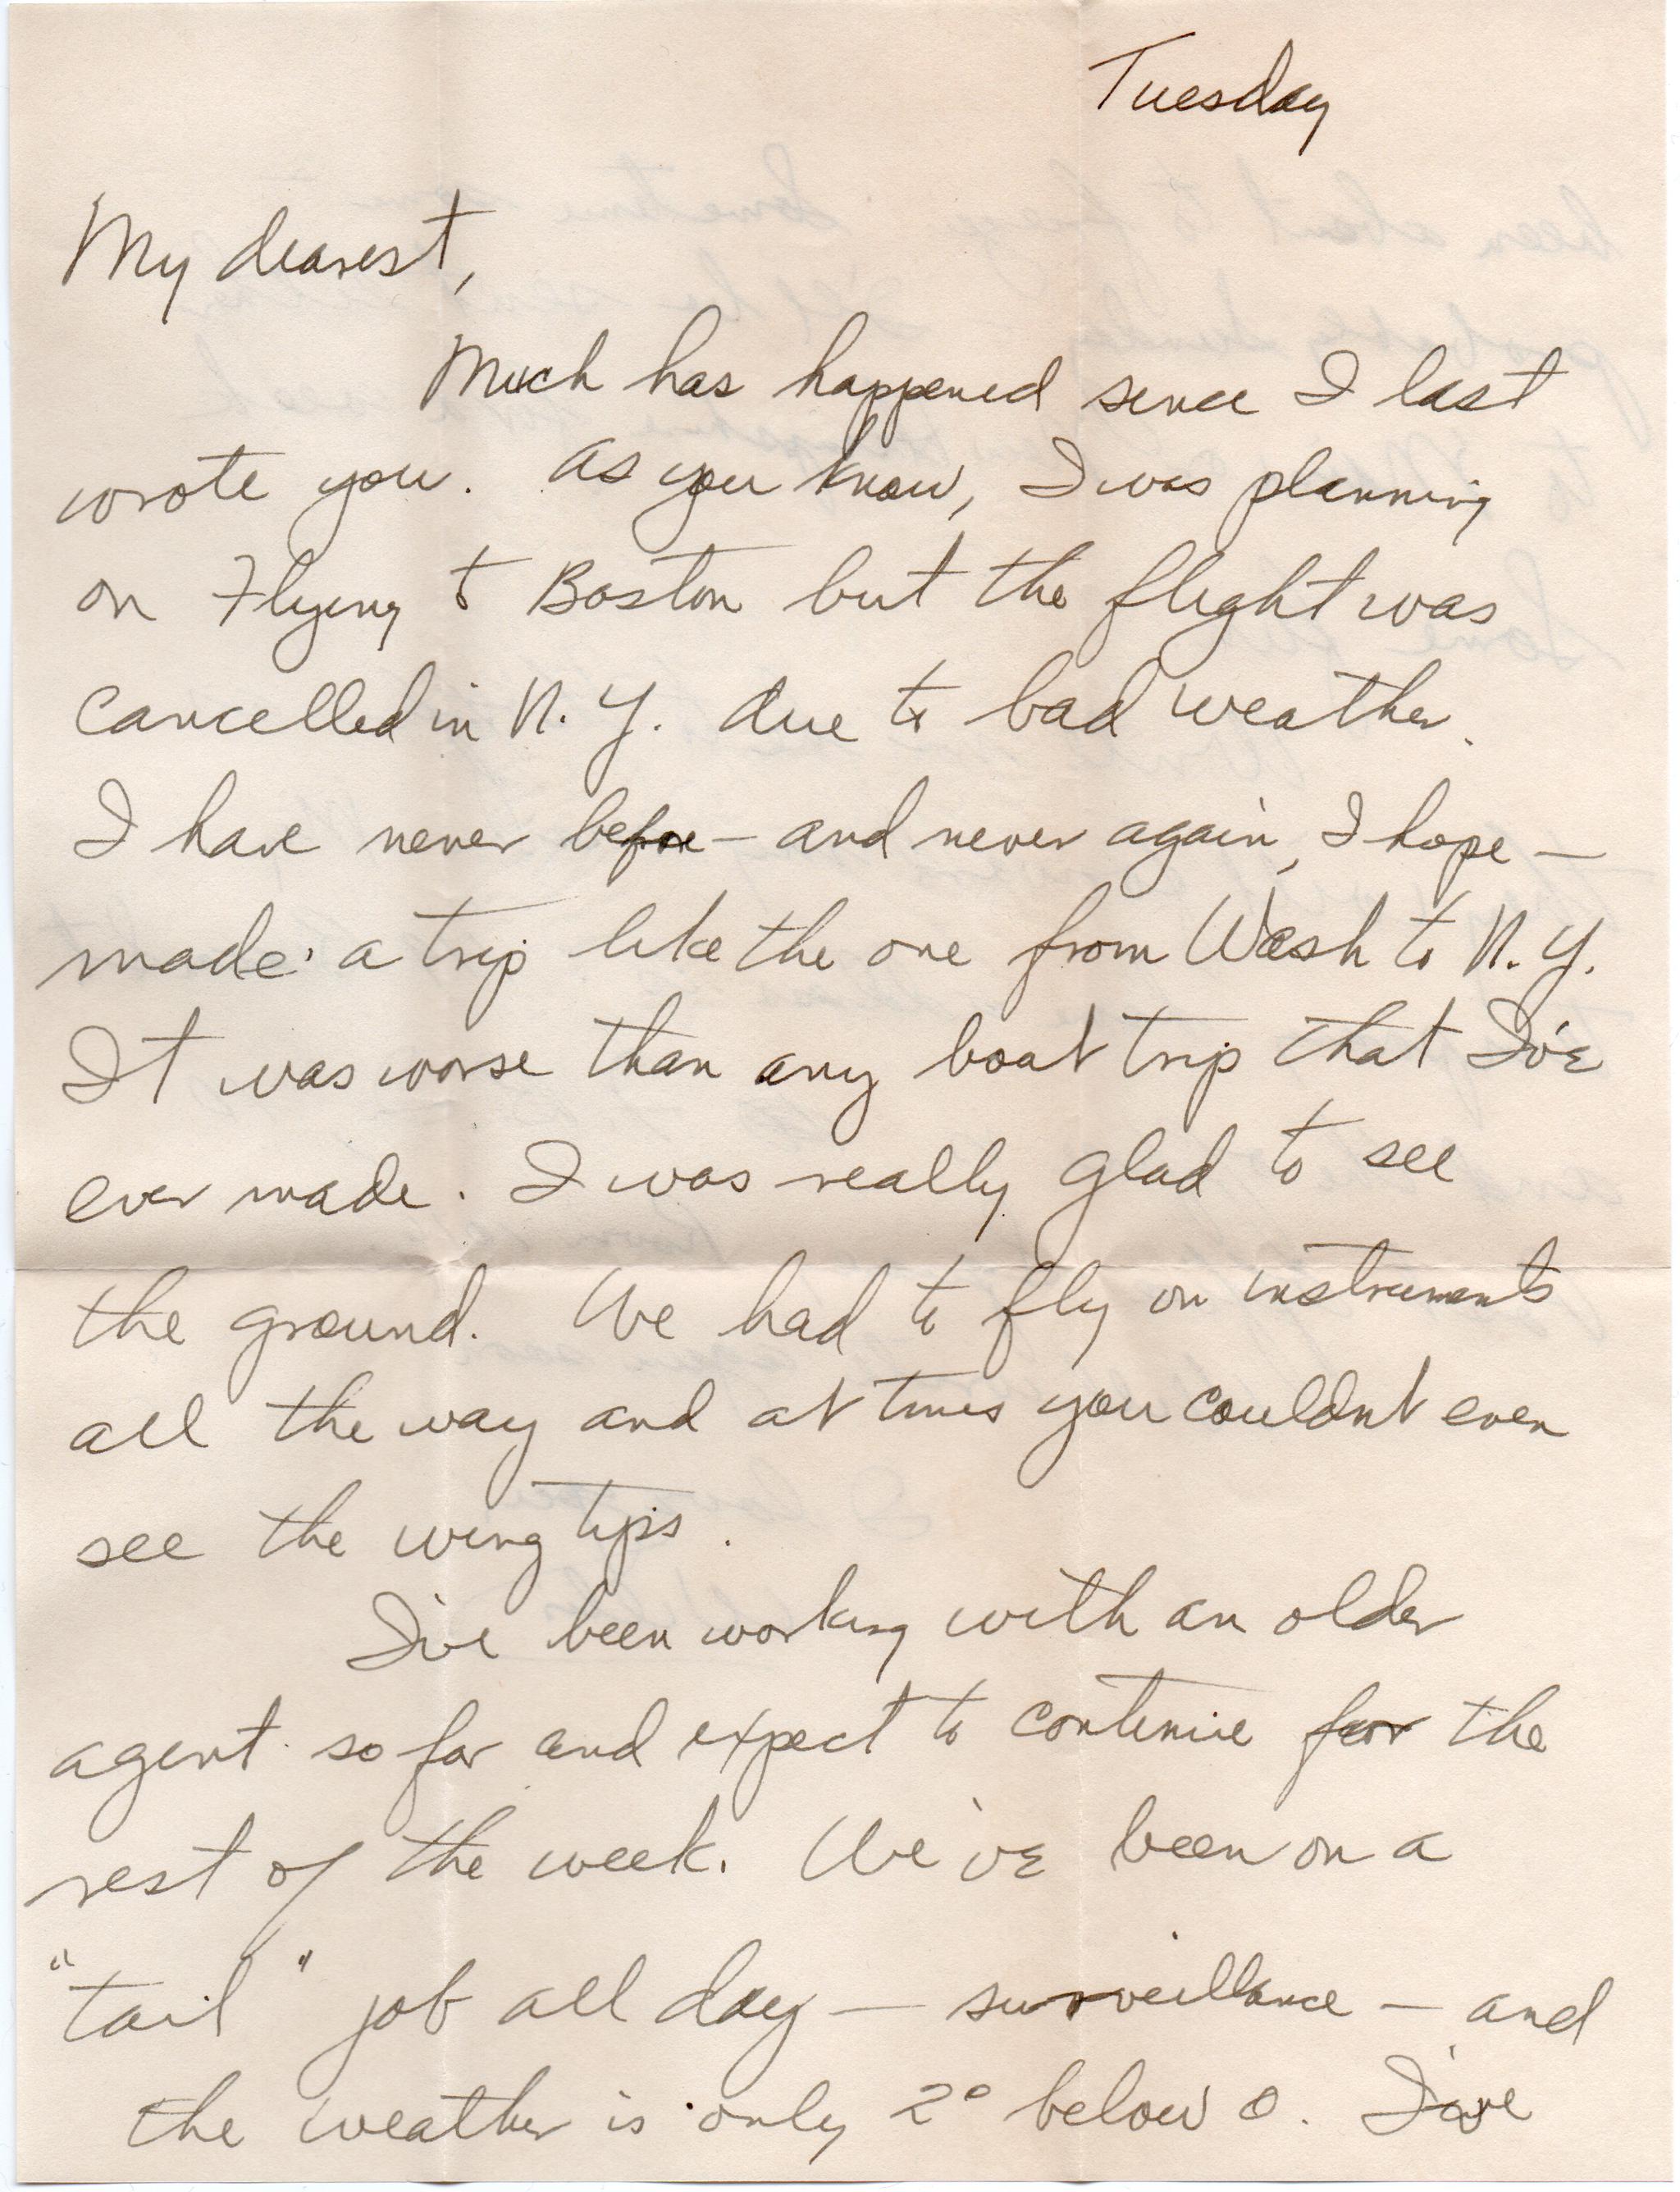 Tuesday
My dearest,
Much has happened since I last
wrote you. As you know, I was planning
on Flying to Boston but the flight was
cancelled in N.Y. due to bad weather.
I have never before — and never again, I hope —
made a trip like the one from Wash to N.Y.
It was worse than any boat trip that I've
ever made. I was really glad to see
the ground. We had to fly on instruments
all the way and at times you couldnt even
see the wing tips.
I've been working with an older
agent so far and expect to continue for the
rest of the week. We've been on a
"tail" job all day — surveillance — and
the weather is only 2° below 0. I've